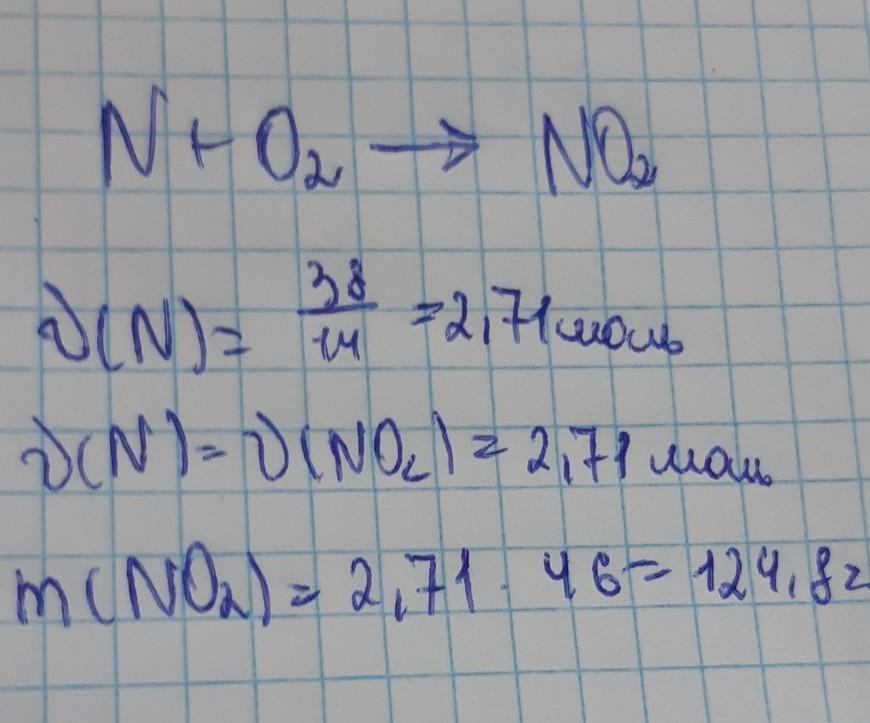 N + O₂ → NO₂
ν(N) = 38/14 = 2,71 моль
ν(N) = ν(NO₂) = 2,71 моль
m(NO₂) = 2,71 · 46 = 124,8г